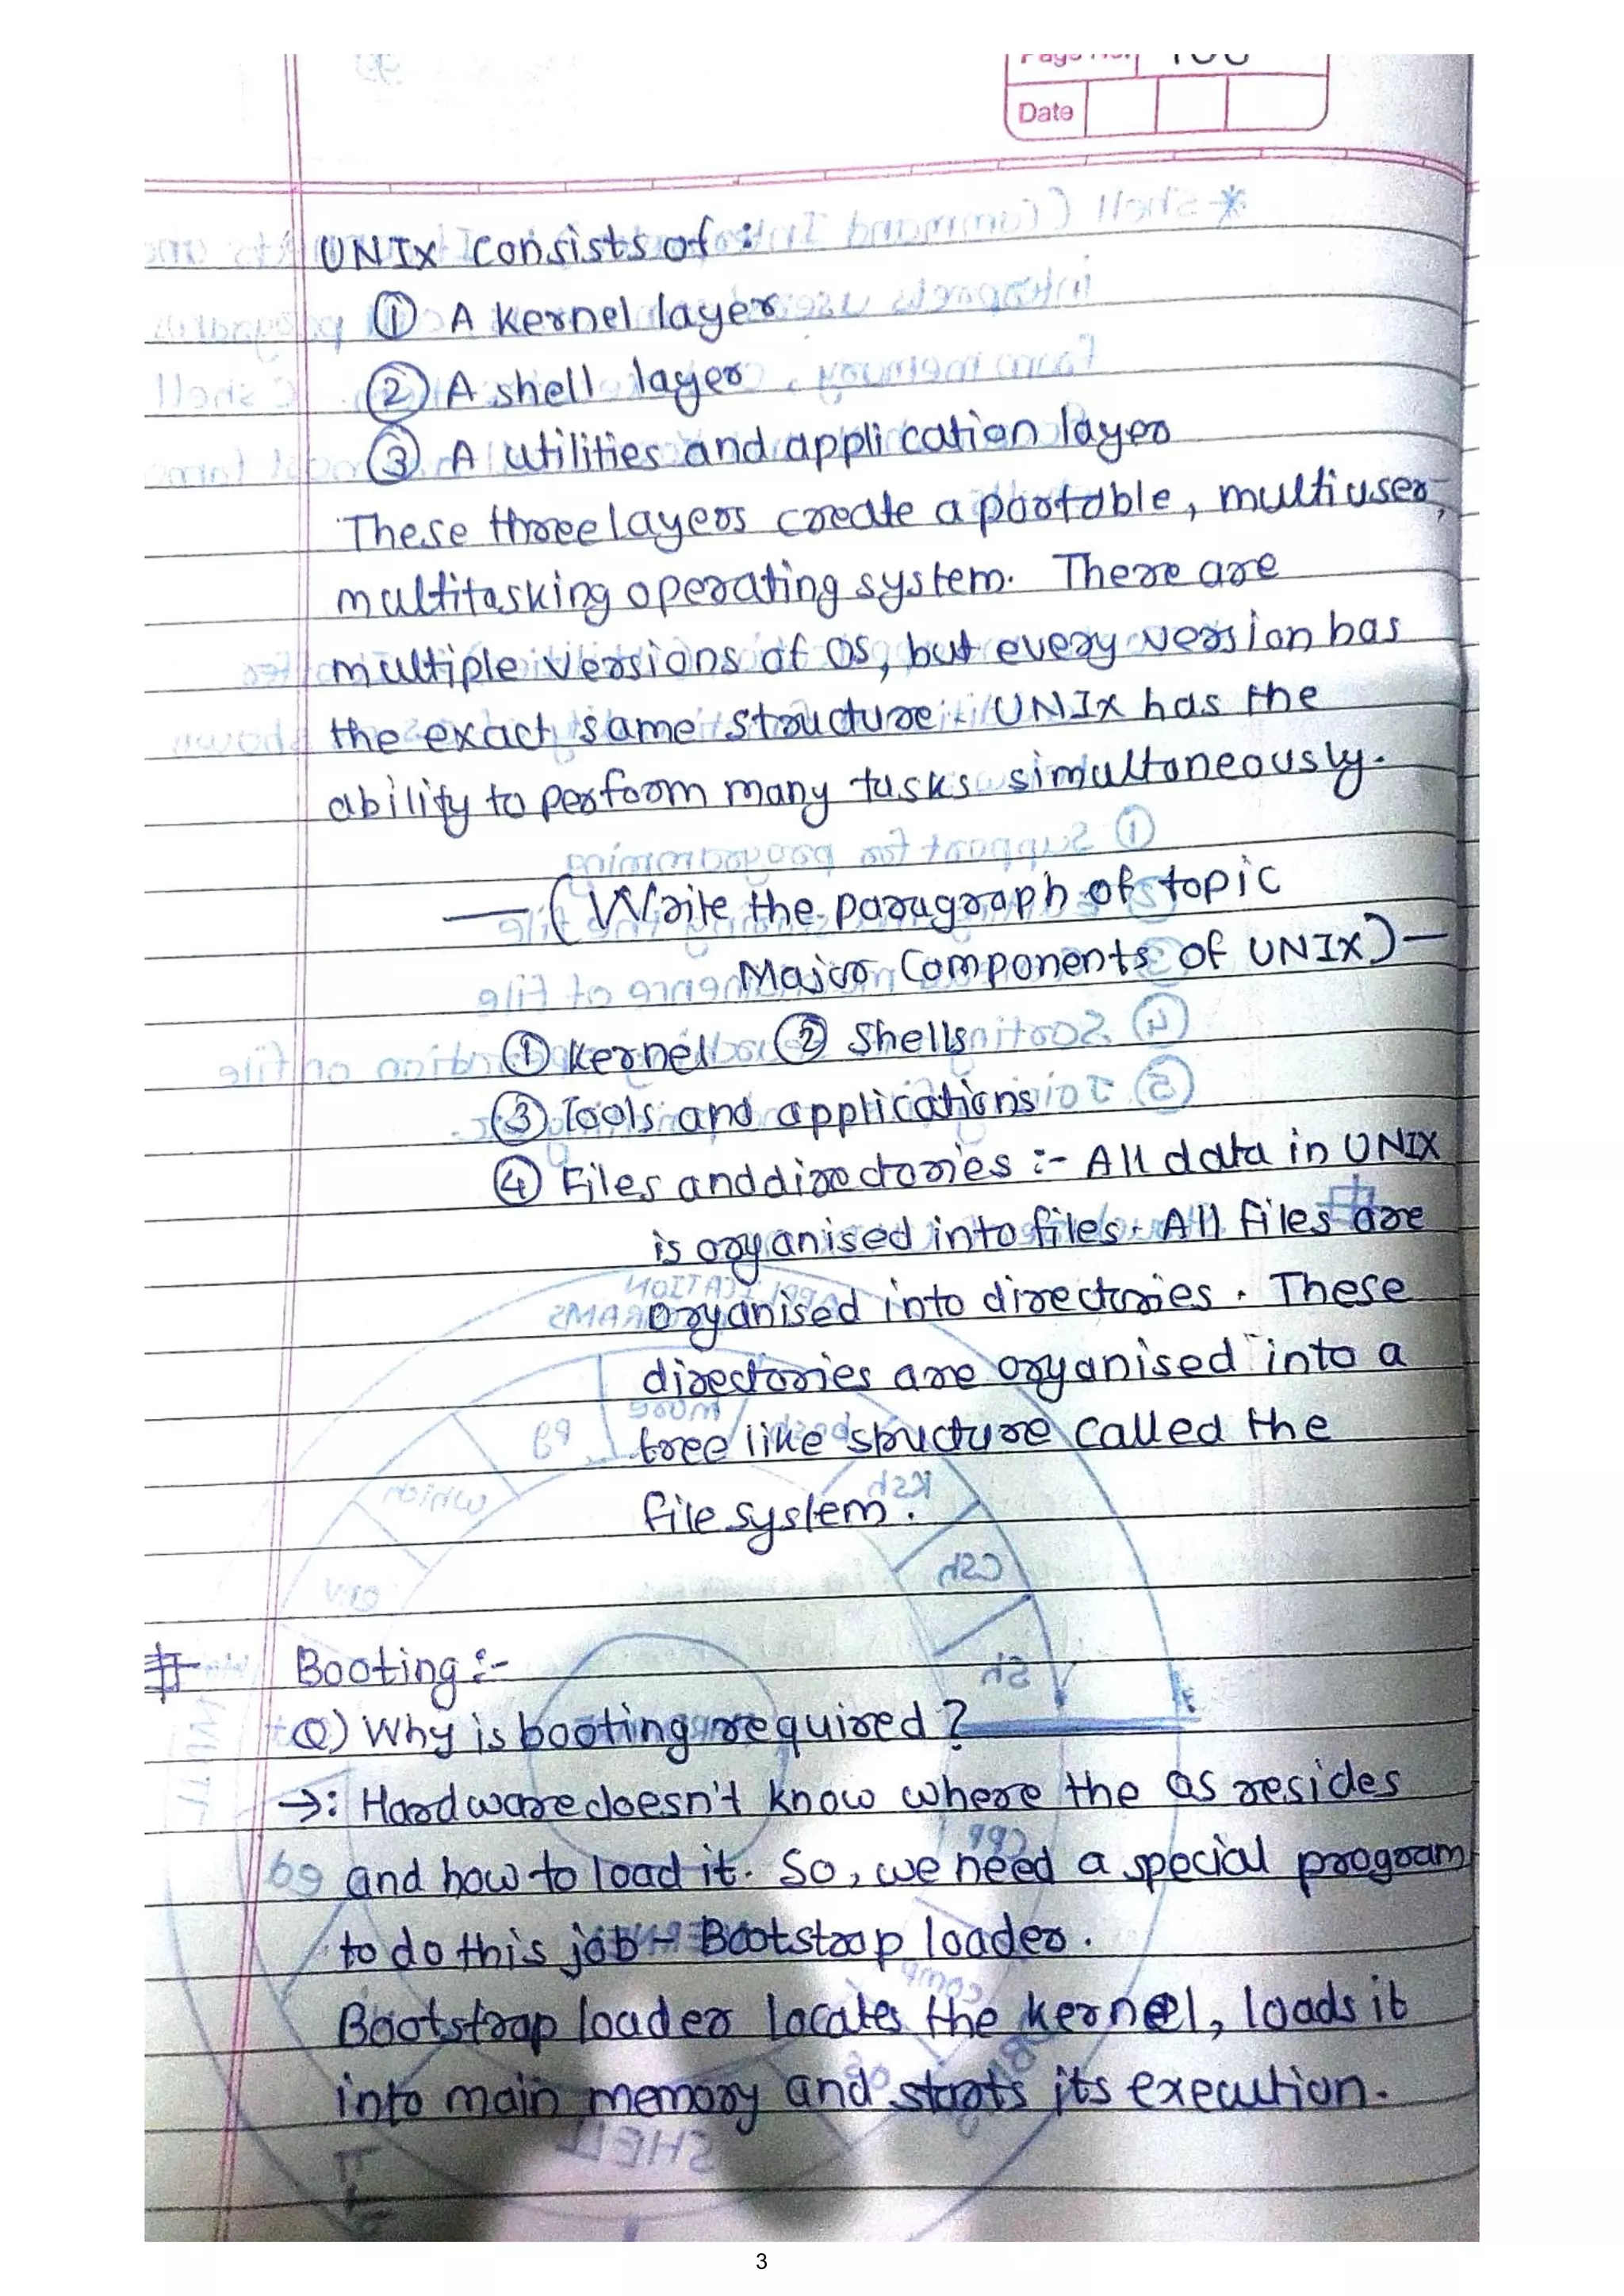 Date
UNIX consists of :
① A kernel layer
② A shell layer
③ A utilities and application layer
These three layers create a portable, multiuser,
multitasking operating system. There are
multiple versions of OS, but every version has
the exact same structure. UNIX has the
ability to perform many tasks simultaneously.
— (Write the paragraph of topic
Major Components of UNIX) —
① Kernel ② Shells
③ Tools and applications
④ Files and directories :- All data in UNIX
is organised into files. All files are
organised into directories. These
directories are organised into a
tree like structure called the
file system.
# Booting :-
Q) Why is booting required ?
→: Hardware doesn't know where the OS resides
and how to load it. So, we need a special program
to do this job - Bootstrap loader.
Bootstrap loader locates the kernel, loads it
into main memory and starts its execution.
3